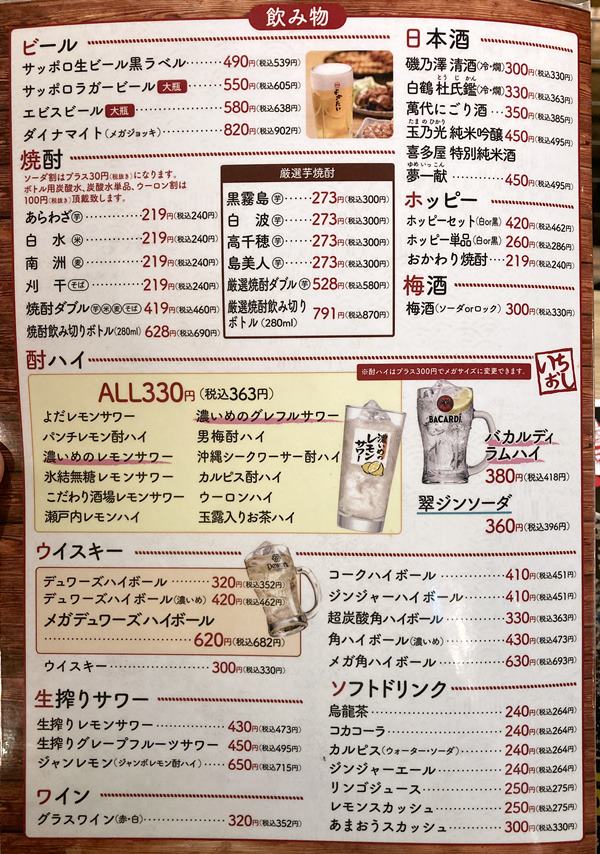 飲み物
ビール
サッポロ生ビール黒ラベル 490円(税込539円)
サッポロラガービール 大瓶 550円(税込605円)
エビスビール 大瓶 580円(税込638円)
ダイナマイト(メガジョッキ) 820円(税込902円)
焼酎
ソーダ割はプラス30円(税抜き)になります。
ボトル用炭酸水、炭酸水単品、ウーロン割は
100円(税抜き)頂戴致します。
あらわざ 芋 219円(税込240円)
白水 米 219円(税込240円)
南洲 麦 219円(税込240円)
刈干 そば 219円(税込240円)
焼酎ダブル 芋 米 麦 そば 419円(税込460円)
焼酎飲み切りボトル(280ml) 628円(税込690円)
厳選芋焼酎
黒霧島 芋 273円(税込300円)
白波 芋 273円(税込300円)
高千穂 芋 273円(税込300円)
島美人 芋 273円(税込300円)
厳選焼酎ダブル 芋 528円(税込580円)
厳選焼酎飲み切り
ボトル(280ml) 791円(税込870円)
日本酒
磯乃澤 清酒(冷・燗) 300円(税込330円)
とうじかん
白鶴 杜氏鑑(冷・燗) 330円(税込363円)
萬代にごり酒 350円(税込385円)
たまのひかり
玉乃光 純米吟醸 450円(税込495円)
喜多屋 特別純米酒
ゆめいっこん
夢一献 450円(税込495円)
ホッピー
ホッピーセット(白or黒) 420円(税込462円)
ホッピー単品(白or黒) 260円(税込286円)
おかわり焼酎 219円(税込240円)
梅酒
梅酒(ソーダorロック) 300円(税込330円)
酎ハイ
※酎ハイはプラス300円でメガサイズに変更できます。
いちおし
ALL330円(税込363円)
よだレモンサワー
パンチレモン酎ハイ
濃いめのレモンサワー
氷結無糖レモンサワー
こだわり酒場レモンサワー
瀬戸内レモンハイ
濃いめのグレフルサワー
男梅酎ハイ
沖縄シークワーサー酎ハイ
カルピス酎ハイ
ウーロンハイ
玉露入りお茶ハイ
濃いめのレモンサワー
BACARDÍ
バカルディ
ラムハイ
380円(税込418円)
翠ジンソーダ
360円(税込396円)
ウイスキー
デュワーズハイボール 320円(税込352円)
デュワーズハイボール(濃いめ) 420円(税込462円)
メガデュワーズハイボール
620円(税込682円)
ウイスキー 300円(税込330円)
Dewar's
コークハイボール 410円(税込451円)
ジンジャーハイボール 410円(税込451円)
超炭酸角ハイボール 330円(税込363円)
角ハイボール(濃いめ) 430円(税込473円)
メガ角ハイボール 630円(税込693円)
生搾りサワー
生搾りレモンサワー 430円(税込473円)
生搾りグレープフルーツサワー 450円(税込495円)
ジャンレモン(ジャンボレモン酎ハイ) 650円(税込715円)
ワイン
グラスワイン(赤・白) 320円(税込352円)
ソフトドリンク
烏龍茶 240円(税込264円)
コカコーラ 240円(税込264円)
カルピス(ウォーター・ソーダ) 240円(税込264円)
ジンジャーエール 240円(税込264円)
リンゴジュース 250円(税込275円)
レモンスカッシュ 250円(税込275円)
あまおうスカッシュ 300円(税込330円)